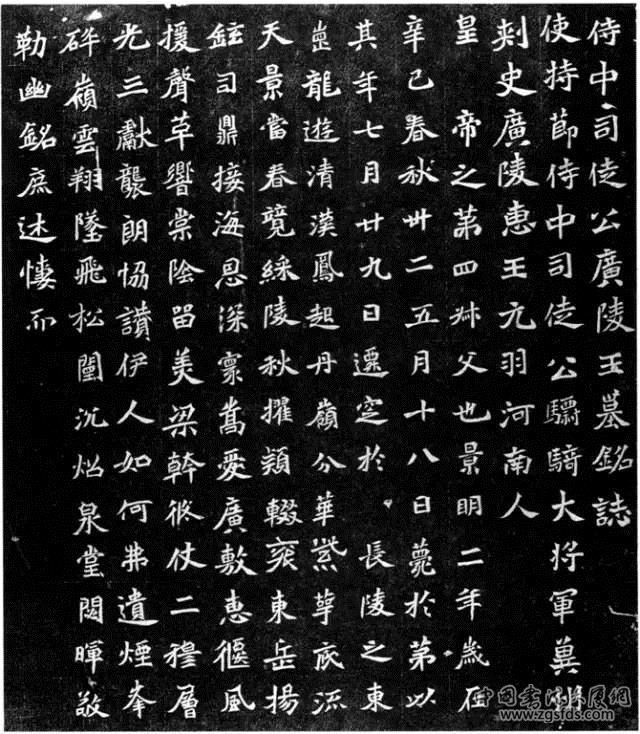 侍中司徒公廣陵王墓銘誌
使持節侍中司徒公驃騎大將軍冀州
刺史廣陵惠王元羽河南人
皇帝之第四叔父也景明二年歲在
辛巳春秋卅二五月十八日薨於第以
其年七月廿九日遷窆於 長陵之東
崗龍遊清漢鳳起丹嶺分華紫萼底流
天景當春競綵陵秋擢穎輟袞東岳揚
鉉司鼎接海恩深寰嵩愛廣敷惠偃風
援聲草響棠陰留美梁幹攸仗二穆層
光三獻襲朗協讚伊人如何弗遺煙峯
碎嶺雲翔墜飛松闈沉炤泉堂閟暉敬
勒幽銘庶述悽而
www.zgsfds.com